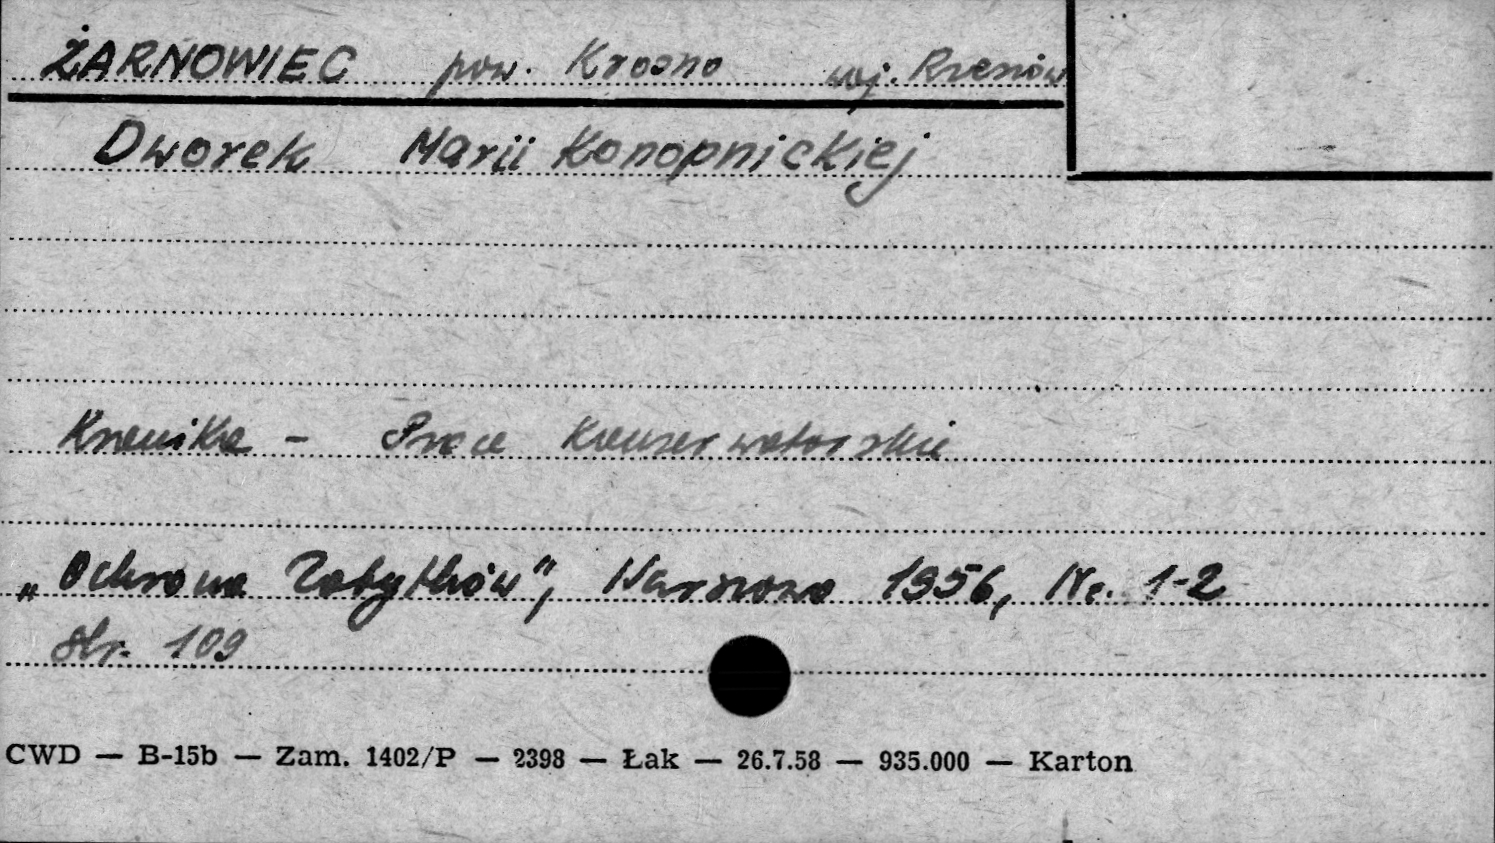 ŻARNOWIEC pow. Krosno woj. Rzeszów
Dworek Marii Konopnickiej
Kronika - Prace konserwatorskie
„Ochrona Zabytków", Warszawa 1956, Nr. 1-2
str. 109
CWD — B-15b — Zam. 1402/P — 2398 — Łak — 26.7.58 — 935.000 — Karton